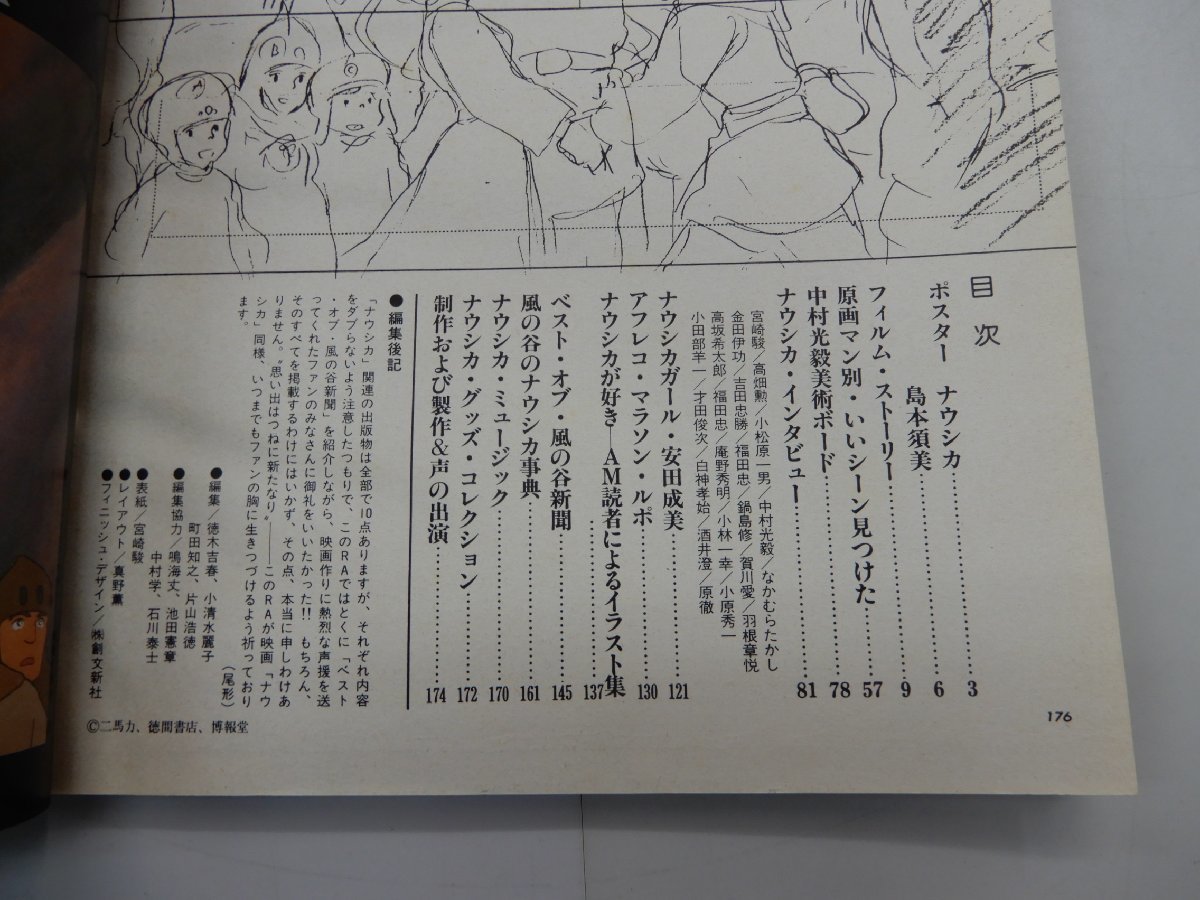 目次
ポスター ナウシカ 3
島本須美 6
フィルム・ストーリー 9
原画マン別・いいシーン見つけた 57
中村光毅美術ボード 78
ナウシカ・インタビュー 81
宮崎駿/高畑勲/小松原一男/中村光毅/なかむらたかし
金田伊功/吉田忠勝/福田忠/鍋島修/賀川愛/羽根章悦
高坂希太郎/福田忠/庵野秀明/小林一幸/小原秀一
小田部羊一/才田俊次/白神孝始/酒井澄/原徹
ナウシカガール・安田成美 121
アフレコ・マラソン・ルポ 130
ナウシカが好き―AM読者によるイラスト集 137
ベスト・オブ・風の谷新聞 145
風の谷のナウシカ事典 161
ナウシカ・ミュージック 170
ナウシカ・グッズ・コレクション 172
制作および製作&声の出演 174
●編集後記
「ナウシカ」関連の出版物は全部で10点ありますが、それぞれ内容
をダブらないよう注意したつもりで、このRAではとくに「ベスト
・オブ・風の谷新聞」を紹介しながら、映画作りに熱烈な声援を送
ってくれたファンのみなさんに御礼をいいたかった!! もちろん、
そのすべてを掲載するわけにはいかず、その点、本当に申しわけあ
りません。〝思い出はつねに新たなり〟――このRAが映画「ナウ
シカ」同様、いつまでもファンの胸に生きつづけるよう祈っており
ます。
(尾形)
●編集/徳木吉春、小清水麗子
町田知之、片山浩徳
●編集協力/鳴海丈、池田憲章
中村学、石川泰士
●表紙/宮崎駿
●レイアウト/真野薫
●フィニッシュ・デザイン/㈱創文新社
©二馬力、徳間書店、博報堂
176